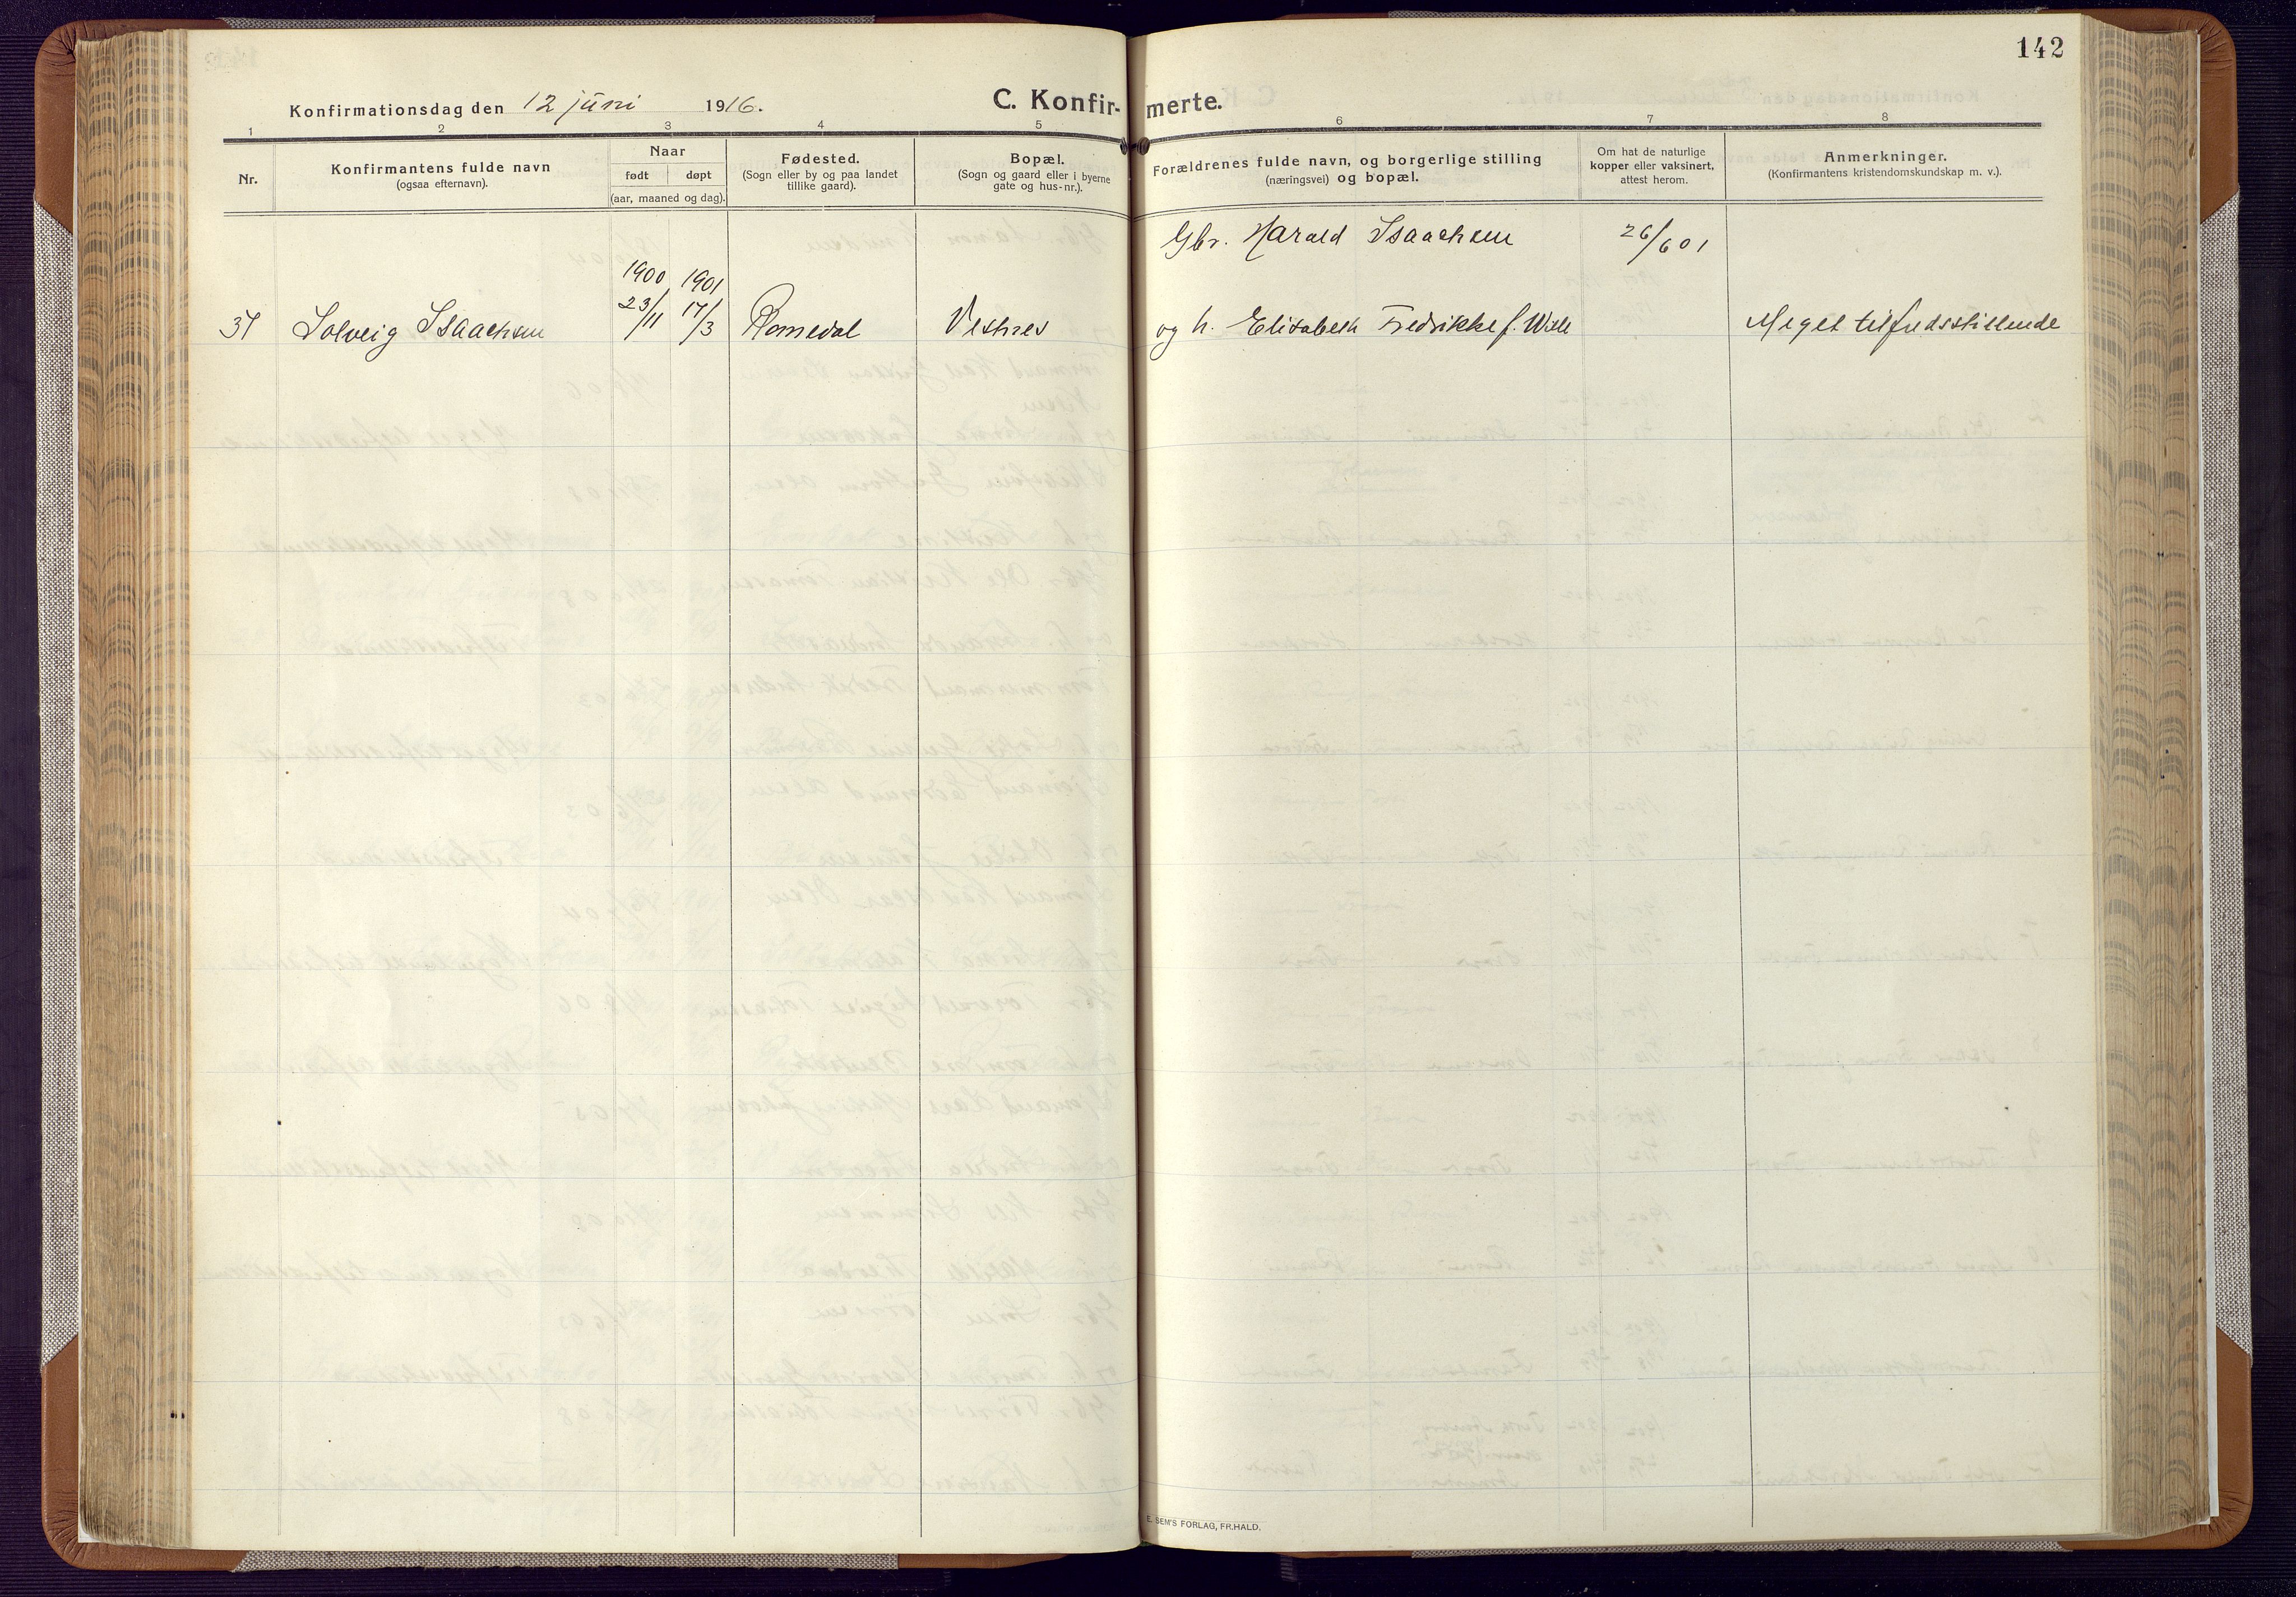 142
Konfirmationsdag den 12 juni 1916.
C. Konfirmerte.
1 2 3 4 5 6 7 8
Nr.
Konfirmantens fulde navn
(ogsaa efternavn).
Naar
født døpt
(aar, maaned og dag).
Fødested.
(Sogn eller by og paa landet
tillike gaard).
Bopæl.
(Sogn og gaard eller i byerne
gate og hus-nr.).
Forældrenes fulde navn, og borgerlige stilling
(næringsvei) og bopæl.
Om hat de naturlige
kopper eller vaksinert,
attest herom.
Anmerkninger.
(Konfirmantens kristendomskundskap m. v.).
Gbr. Harald Isaachsen 26/6 01
1900 1901
37 Solveig Isaachsen 23/11 17/3 Romedal Vestnes og h. Elisabeth Fredrikke f. Wille Meget tilfredsstillende
E. SEM'S FORLAG, FR.HALD.